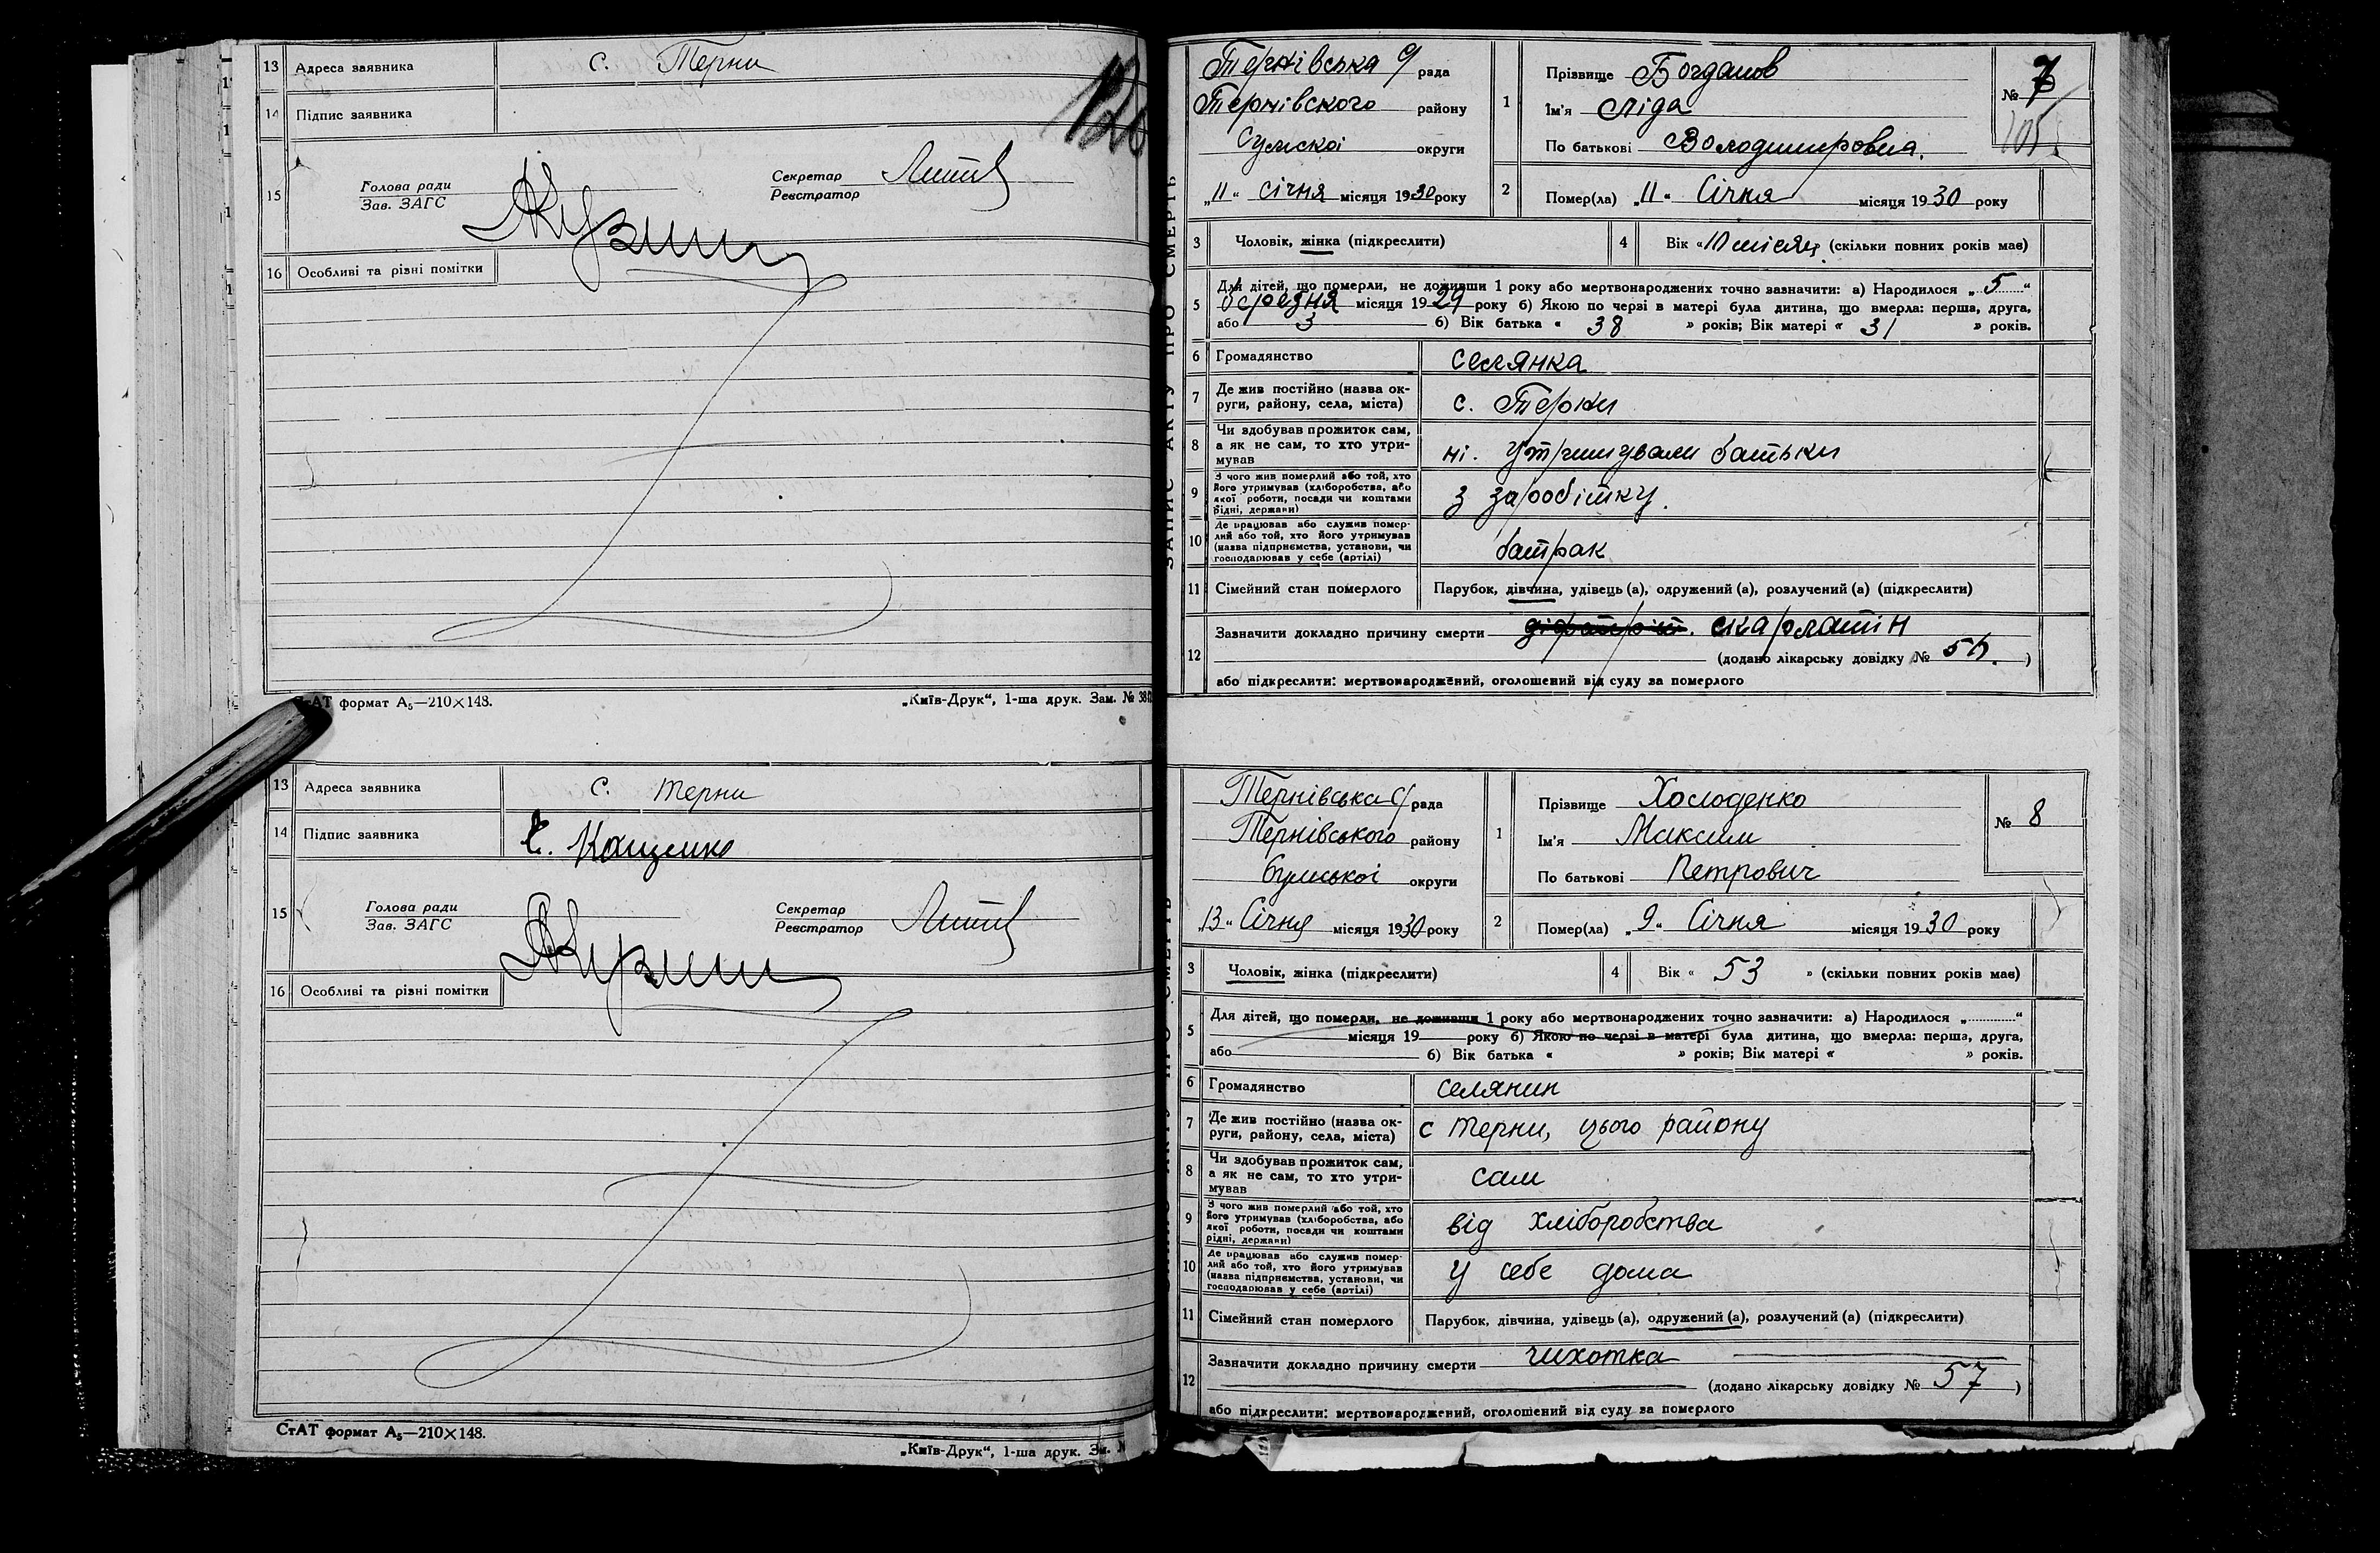 13 Адреса заявника с. Терни
120
14 Підпис заявника
15 Голова ради Секретар
Зав. ЗАГС Реєстратор
16 Особливі та різні помітки
СтАТ формат А₅—210×148.
„Київ-Друк“, 1-ша друк. Зам. №
13 Адреса заявника с. Терни
14 Підпис заявника Кащенко
15 Голова ради Секретар
Зав. ЗАГС Реєстратор
16 Особливі та різні помітки
СтАТ формат А₅—210×148.
„Київ-Друк“, 1-ша друк. Зам. №
ЗАПИС АКТУ ПРО СМЕРТЬ
Тернівська рада
Тернівского району
Сумскоі округи
„11“ січня місяця 1930 року
1 Прізвище Богданов
Ім'я Ліда
По батькові Володимировна.
№ 7
105
2 Помер(ла) „11“ Січня місяця 1930 року
3 Чоловік, жінка (підкреслити)
4 Вік «10 місяц. (скільки повних років мав)
5 Для дітей, що померли, не доживши 1 року або мертвонароджених точно зазначити: а) Народилося „5“
березня місяця 1929 року б) Якою по черві в матері була дитина, що вмерла: перша, друга,
або 3 б) Вік батька « 38 » років; Вік матері « 31 » років.
6 Громадянство селянка
7 Де жив постійно (назва округи, району, села, міста) с. Терни
8 Чи здобував прожиток сам, а як не сам, то хто утримував ні. утримували батьки
9 З чого жив померлий або той, хто його утримував (хліборобства, або якої роботи, посади чи коштами рідні, держави) з заробітку.
10 Де працював або служив померлий або той, хто його утримував (назва підприємства, установи, чи господарював у себе (артілі) батрак
11 Сімейний стан померлого Парубок, дівчина, удівець (а), одружений (а), розлучений (а) (підкреслити)
12 Зазначити докладно причину смерти скарлатін
(додано лікарську довідку № )
або підкреслити: мертвонароджений, оголошений від суду за померлого
Тернівська рада
Тернівського району
Сумської округи
„13“ Січня місяця 1930 року
1 Прізвище Холоденко
Ім'я Максим
По батькові Петрович
№ 8
2 Помер(ла) „9“ Січня місяця 1930 року
3 Чоловік, жінка (підкреслити)
4 Вік « 53 » (скільки повних років мав)
5 Для дітей, що померли, не доживши 1 року або мертвонароджених точно зазначити: а) Народилося „ “
місяця 19 року б) Якою по черві в матері була дитина, що вмерла: перша, друга,
або б) Вік батька « » років; Вік матері « » років.
6 Громадянство селянин
7 Де жив постійно (назва округи, району, села, міста) с Терни, цього району
8 Чи здобував прожиток сам, а як не сам, то хто утримував сам
9 З чого жив померлий або той, хто його утримував (хліборобства, або якої роботи, посади чи коштами рідні, держави) від хліборобства
10 Де працював або служив померлий або той, хто його утримував (назва підприємства, установи, чи господарював у себе (артілі) у себе дома
11 Сімейний стан померлого Парубок, дівчина, удівець (а), одружений (а), розлучений (а) (підкреслити)
12 Зазначити докладно причину смерти чихотка
(додано лікарську довідку № 57 )
або підкреслити: мертвонароджений, оголошений від суду за померлого